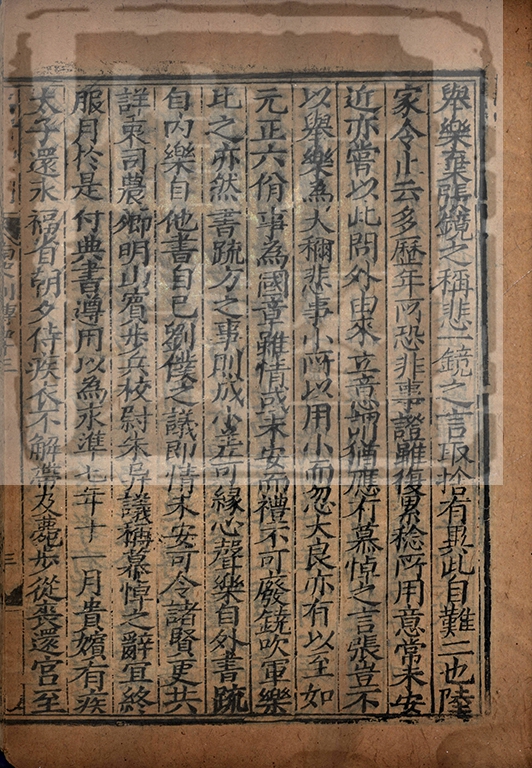 舉樂棄張鏡之稱悲一鏡之言取捨有異此自難二也陸
家令止云多歷年所恐非事證雖復累稔所用意常未安
近亦嘗以此問外由來立意謂猶應有慕悼之言張豈不
以舉樂為大稱悲事小所以用小而忽大良亦有以至如
元正六佾事為國章雖情或未安而禮不可廢鐃吹軍樂
比之亦然書疏方之事則成小差可緣心聲樂自外書疏
自內樂自他書自己劉僕之議即情未安可令諸賢更共
詳衷司農卿明山賓步兵校尉朱异議稱慕悼之辭宜終
服月於是付典書遵用以為永準七年十一月貴嬪有疾
太子還永福省朝夕侍疾衣不解帶及薨步從喪還宮至